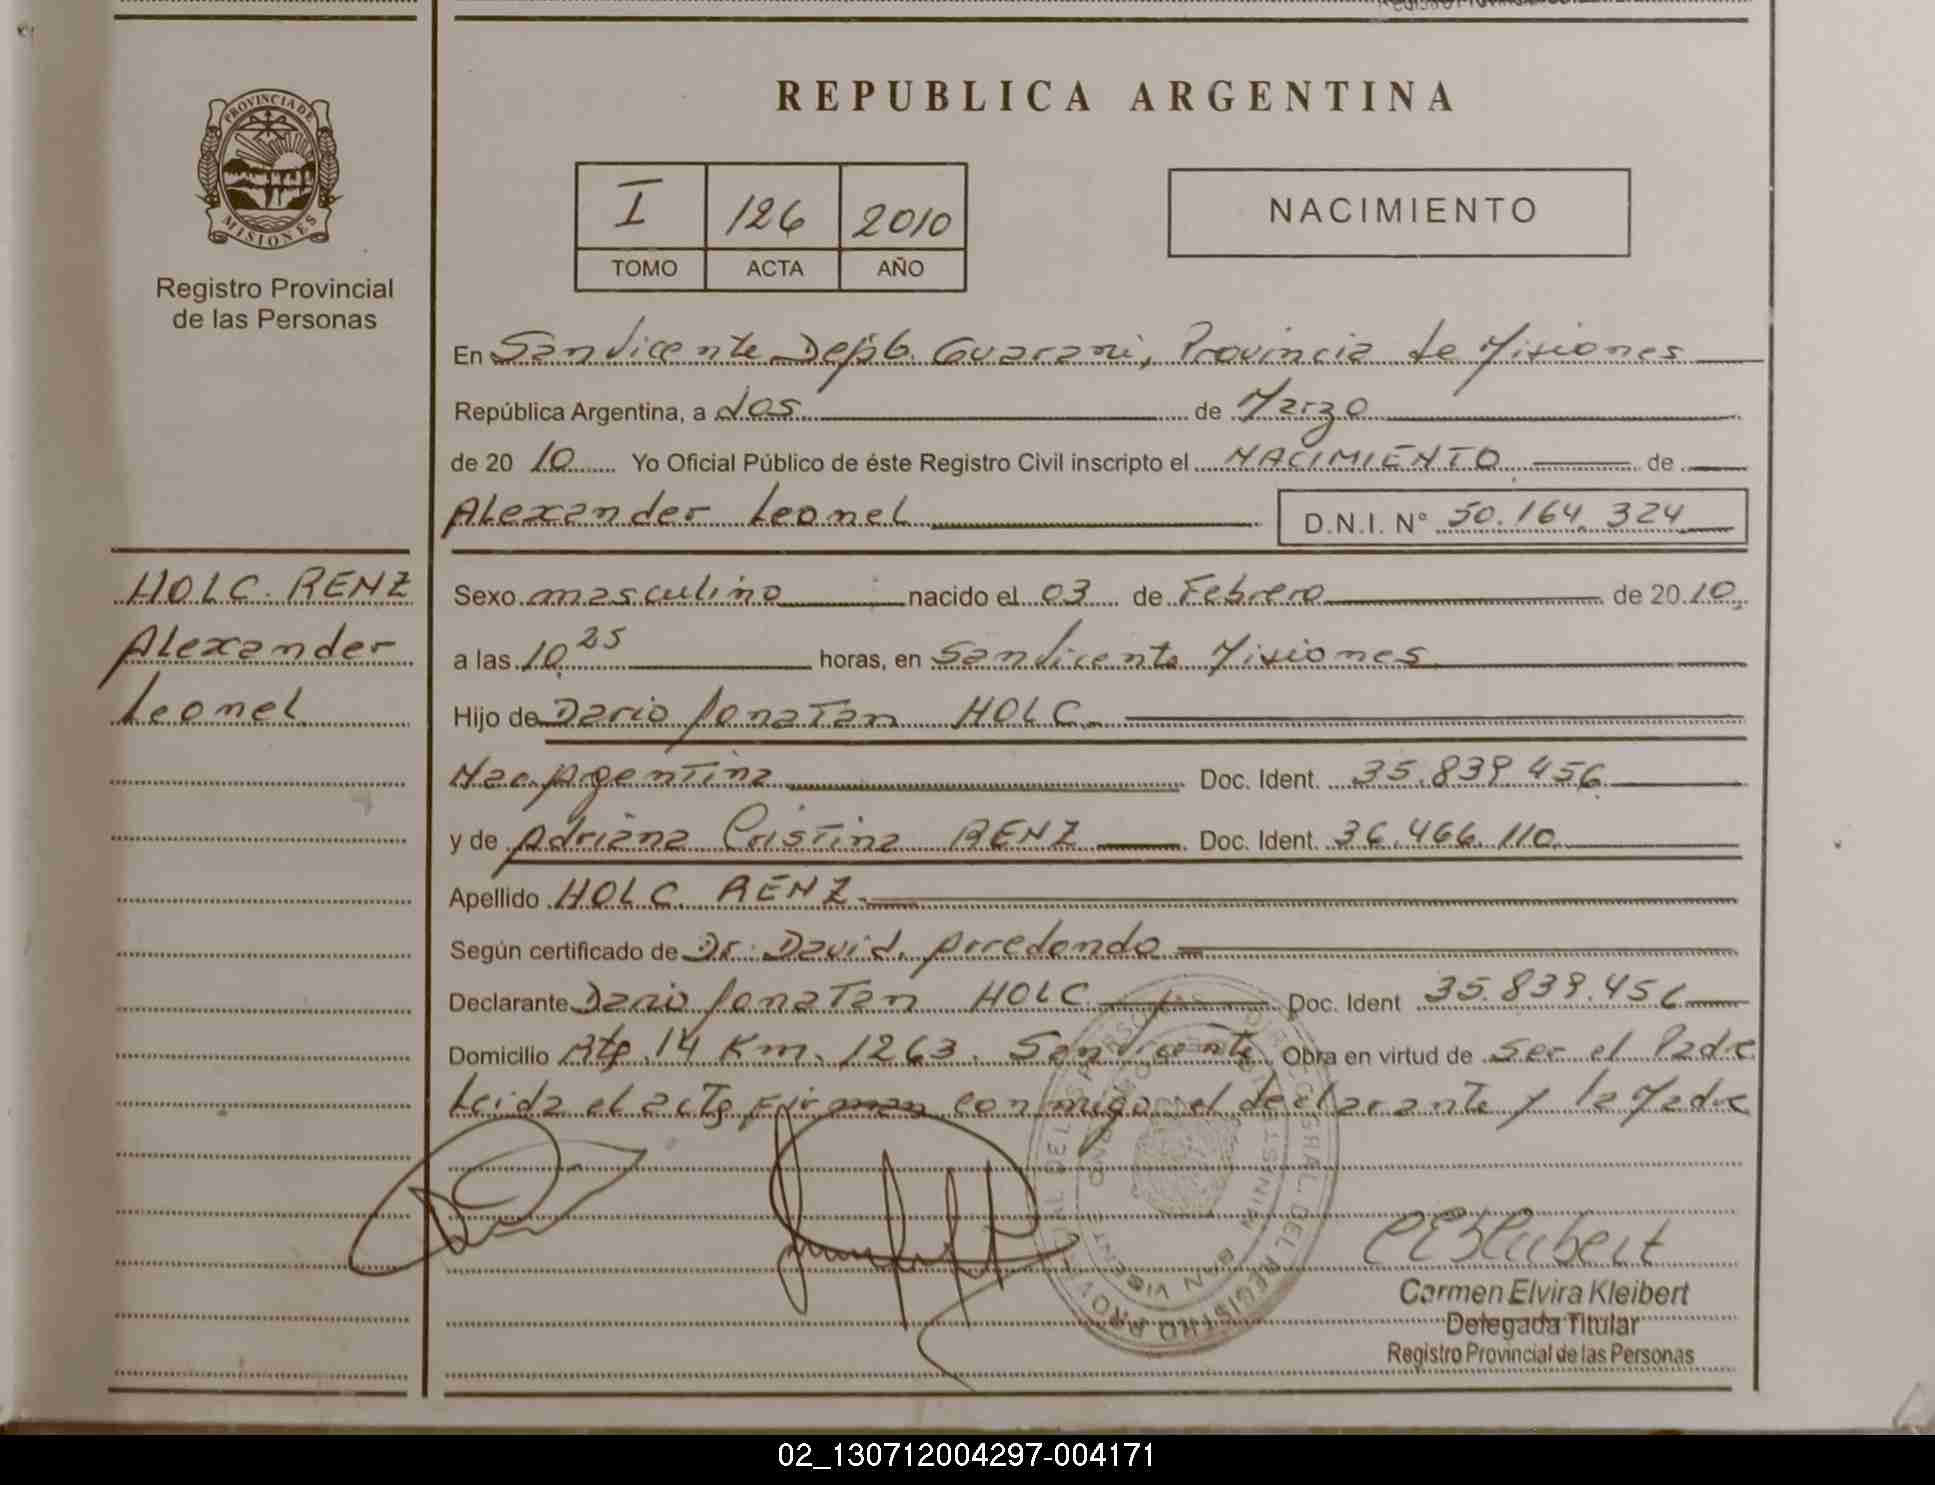 REPUBLICA ARGENTINA
PROVINCIA DE
MISIONES
Registro Provincial
de las Personas
I 126 2010
TOMO ACTA AÑO
NACIMIENTO
En San Vicente Depto. Guarani, Provincia de Misiones
República Argentina, a dos de Marzo
de 20 10 Yo Oficial Público de éste Registro Civil inscripto el NACIMIENTO de
Alexander Leonel D.N.I. N° 50.164.324
HOLC. RENZ
Alexander
Leonel
Sexo masculino nacido el 03 de Febrero de 20 10,
a las 10,25 horas, en San Vicente Misiones
Hijo de Dario Jonatan HOLC.
Nac. Argentina Doc. Ident. 35.839.456
y de Adriana Cristina RENZ Doc. Ident. 36.466.110
Apellido HOLC. RENZ.
Según certificado de Dr. David. Arredondo
Declarante Dario Jonatan HOLC. Doc. Ident 35.839.456
Domicilio Rta. 14 Km. 1263. San Vicente Obra en virtud de ser el Padre
Leida el acta firman conmigo el declarante y la Madre
Carmen Elvira Kleibert
Delegada Titular
Registro Provincial de las Personas
02_130712004297-004171